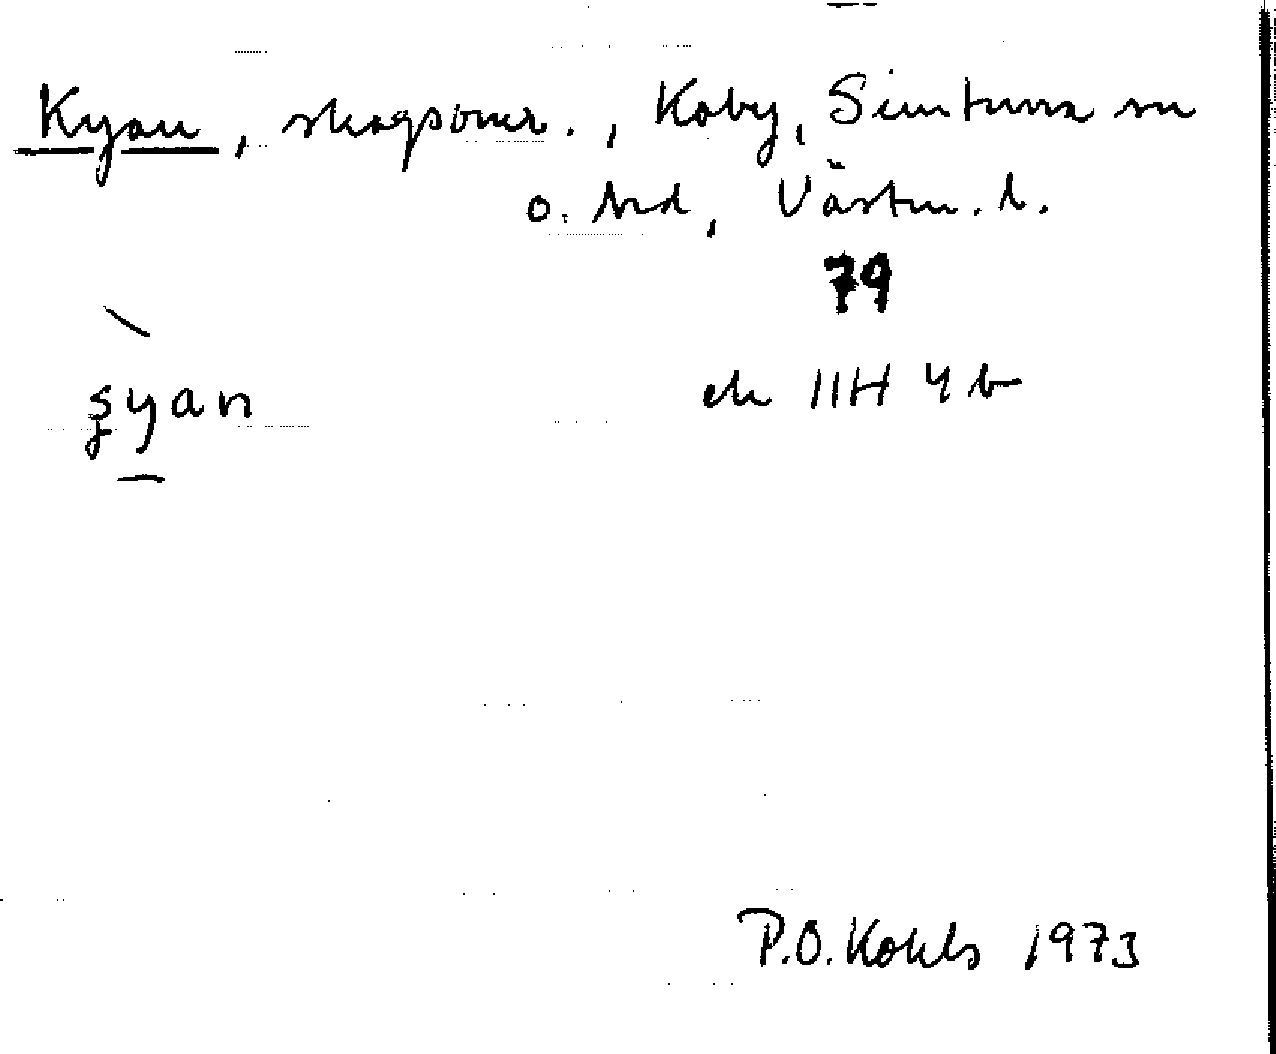 Kyan, skogsomr., Kaby, Simtuna sn
o. hd, Västm. l.
79
ʂyan
ek 11H 4b
P.O. Kohls 1973